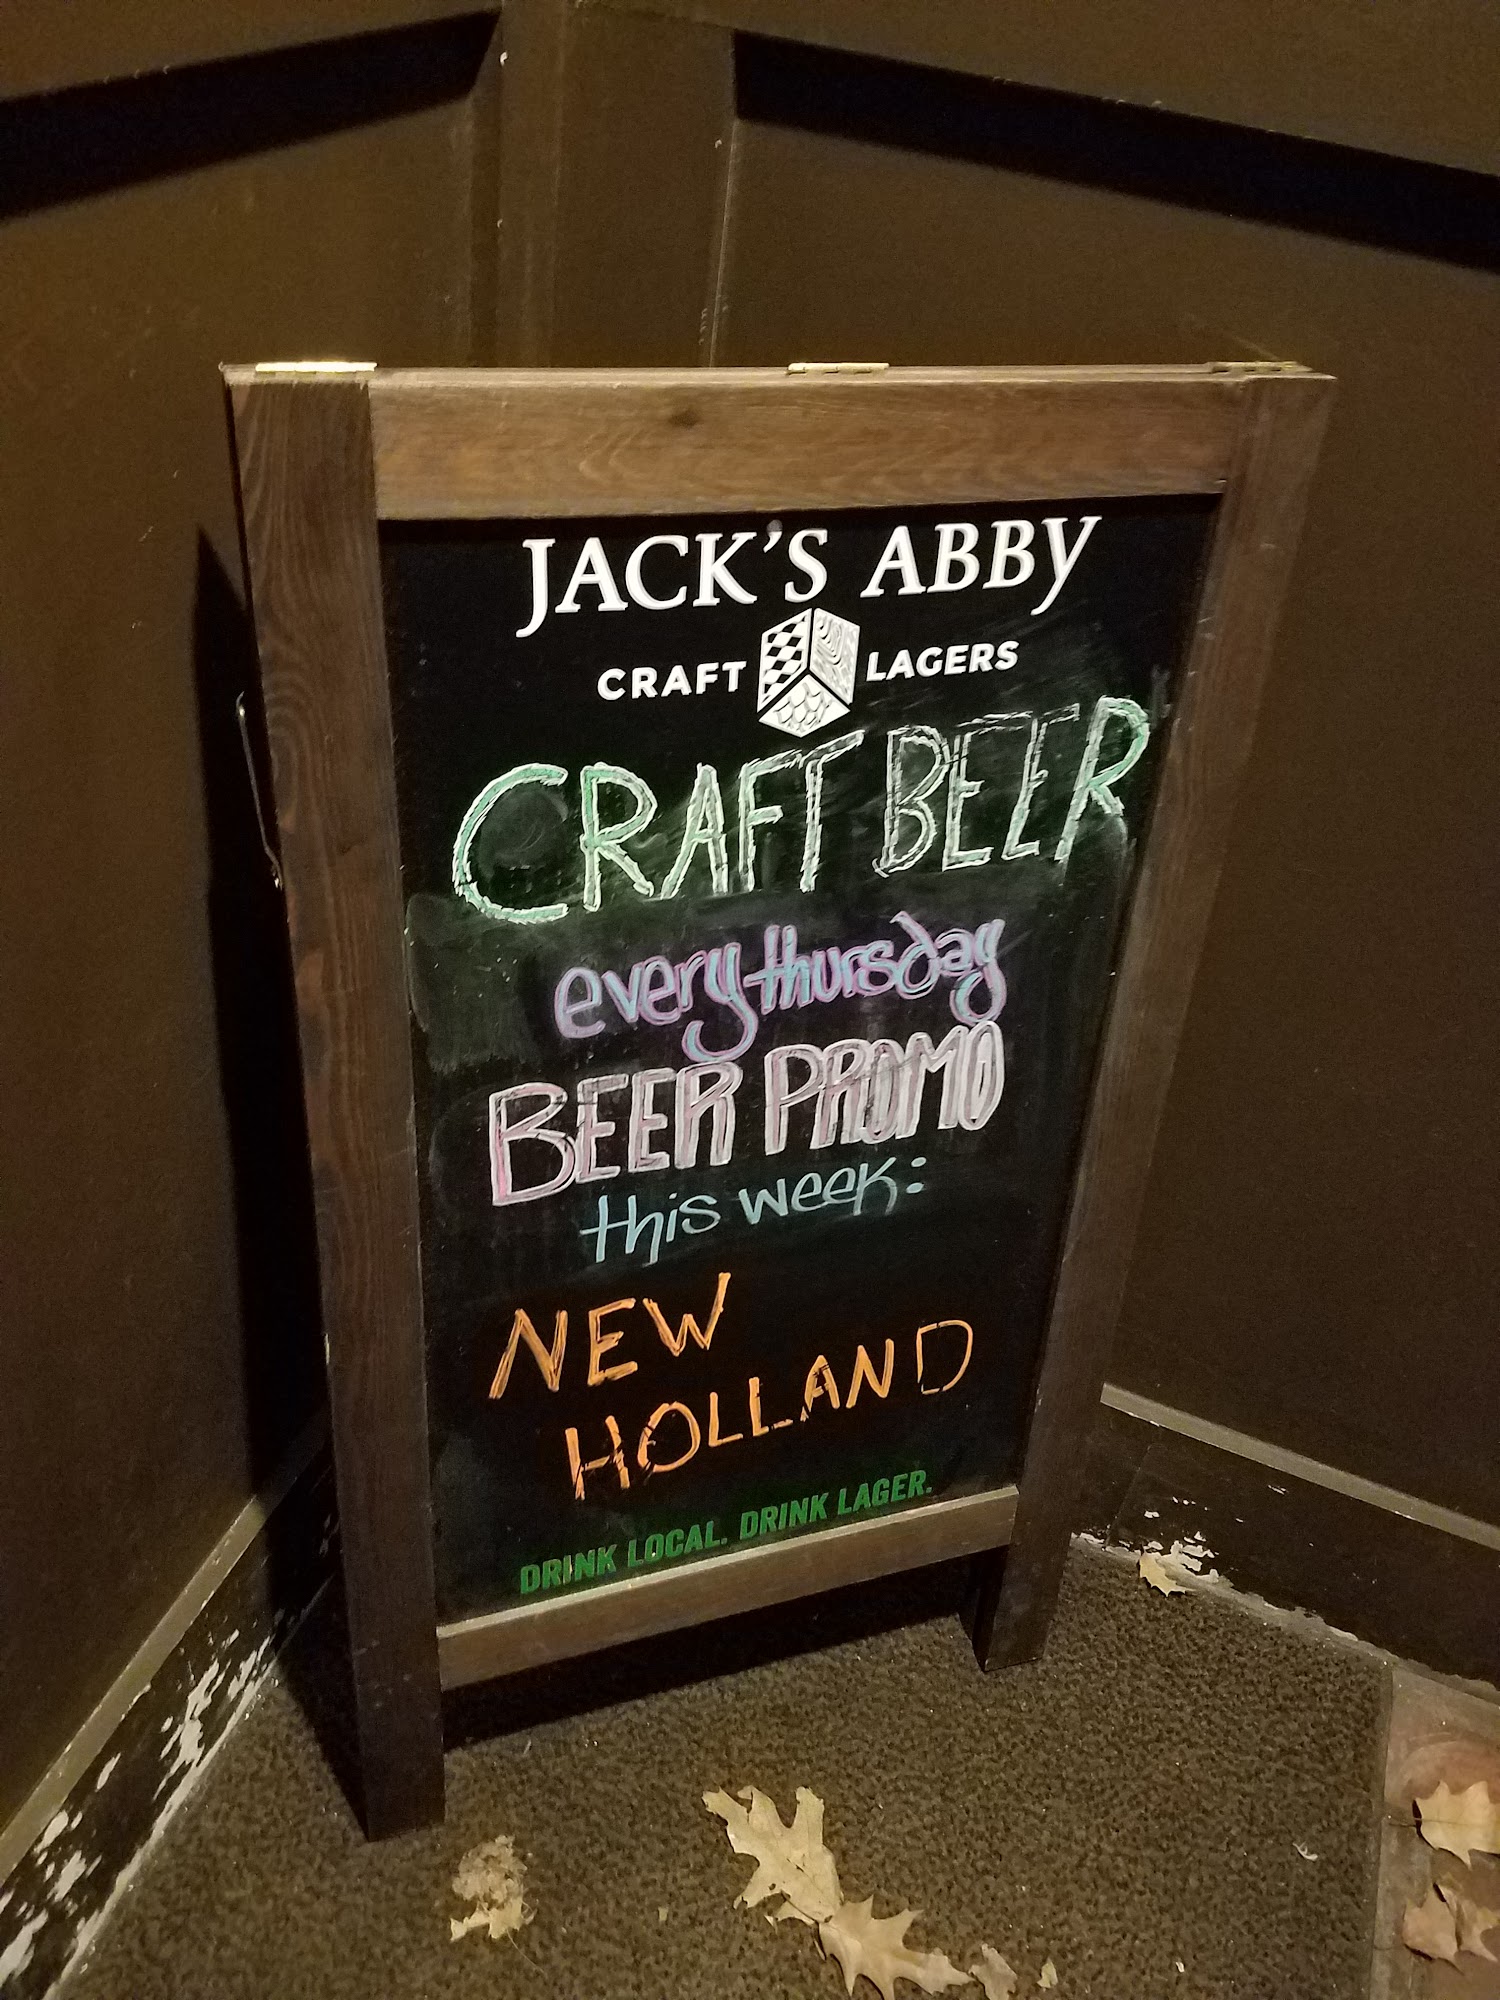 JACK'S ABBY
CRAFT LAGERS
CRAFT BEER
every thursday
BEER PROMO
this week:
NEW
HOLLAND
DRINK LOCAL. DRINK LAGER.